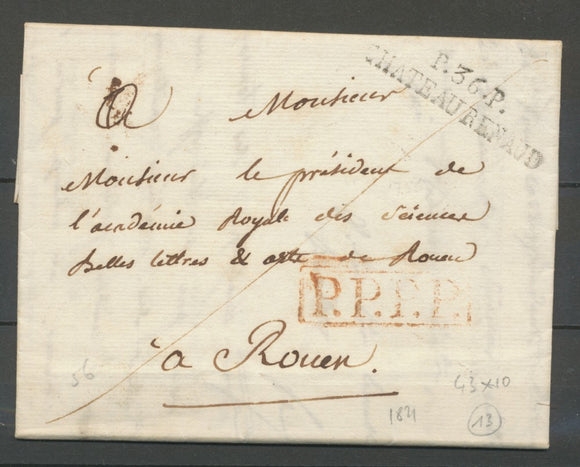 P.36.P.
CHATEAURENAUD
A Monsieur
Monsieur le président de
l'académie Royale des Sciences
Belles lettres & arts de Rouen
P.P.P.P.
à Rouen.
56
43x10
1821
13